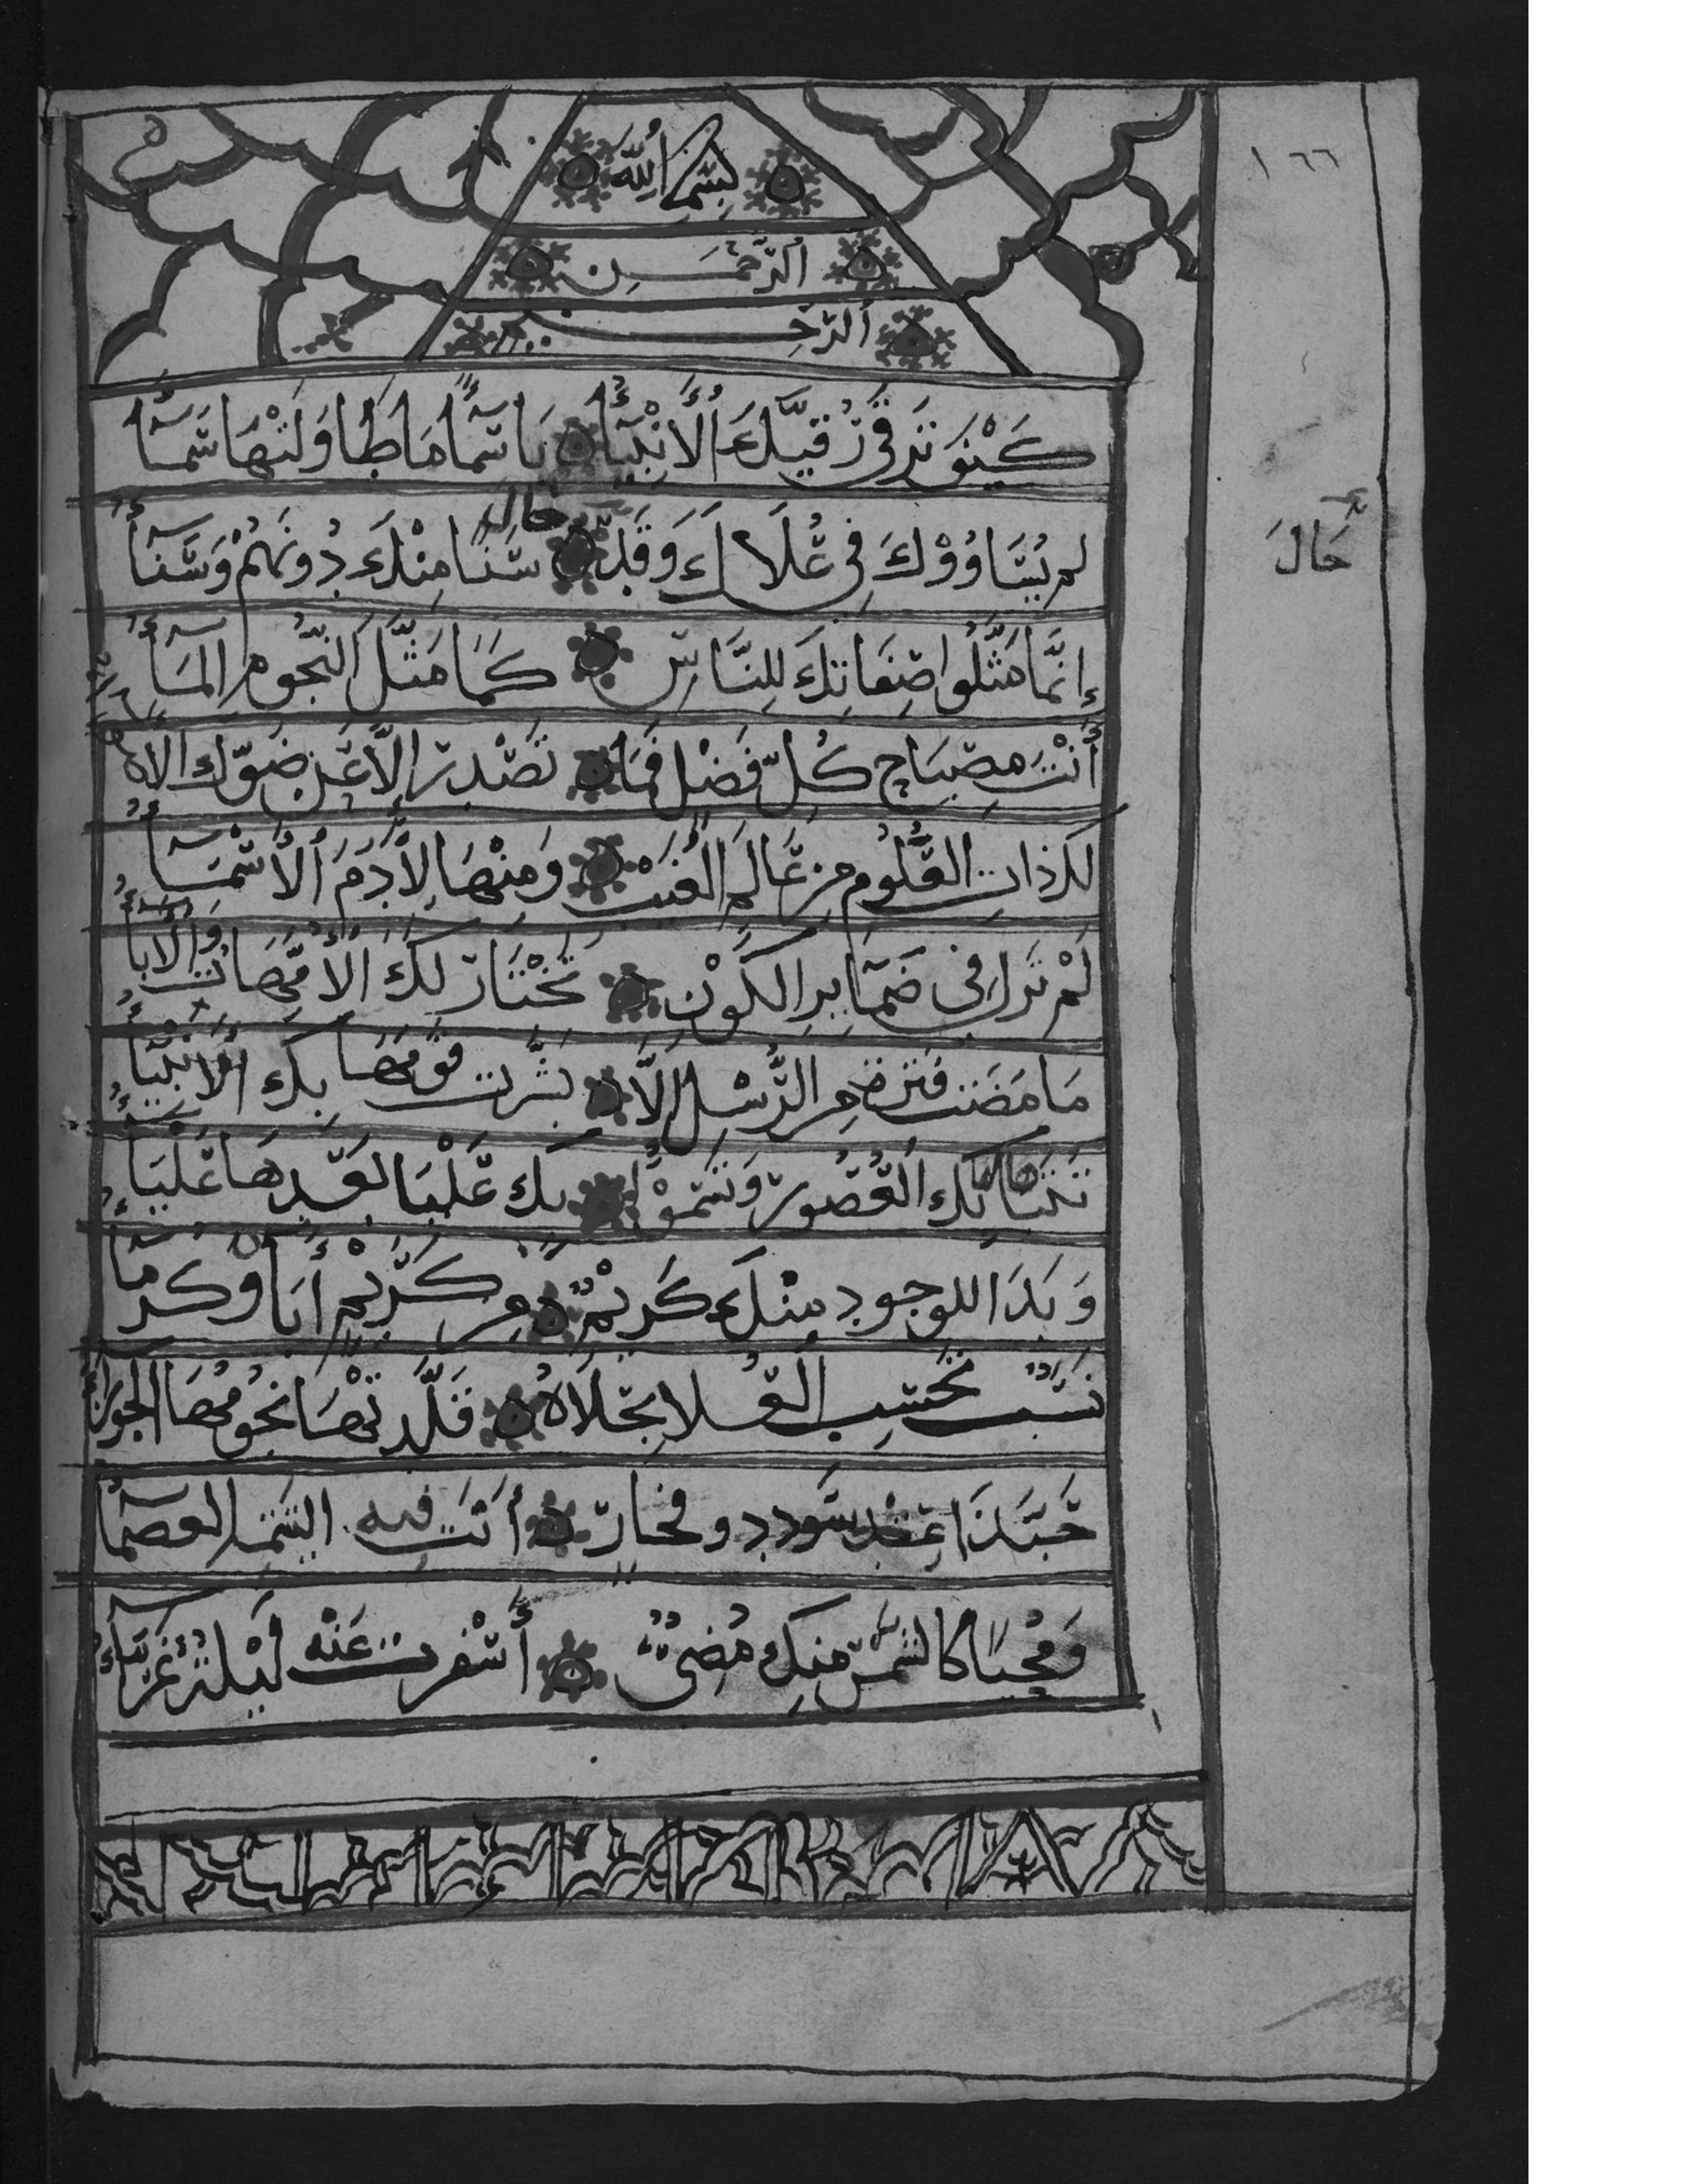 ١٦٦
بِسْمِ اللَّه
الرَّحْمَٰن
الرَّحِيم
كَيْفَ تَرْقَى رُقِيَّكَ الْأَنْبِيَاءُ يَا سَمَاءً مَا طَاوَلَتْهَا سَمَاءُ
لم يُسَاوُوْكَ فِي عُلَاكَ وَقَد حَالَ سَنًا مِنْكَ دُونَهُمْ وَسَنَاءُ
حَالَ
إِنَّمَا مَثَّلُوا صِفَاتِكَ لِلنَّاسِ كَمَا مَثَّلَ النُّجُومَ الْمَاءُ
أَنْتَ مِصْبَاحُ كُلِّ فَضْلٍ فَمَا تَصْدُر إِلَّا عَن ضَوْئِك الاه
لَكَ ذَاتُ الْعُلُومِ مِن عَالِمِ الْغَيْبِ وَمِنْهَا لِأَدَمَ الْأَسْمَاءُ
لَمْ تَزَل فِي ضَمَايِرِ الْكَوْنِ تُخْتَارُ لَكَ الْأُمَّهَاتُ وَالْأَبَاءُ
مَا مَضَت فَتْرَة مِن الرُّسْلِ إِلَّا بَشَّرَت قَوْمَهَا بِكَ الْأَنْبِيَاءُ
تَتَبَاهَا بِكَ الْعُصُورُ وَتَسْمُوْا بِكَ عَلْيَا بَعْدهَا عَلْيَاءُ
وَبَدَا للوجود مِنْكَ كَرِيْمٌ مِن كَرِيْمٍ أَبَاوْهُ كُرَمَاءُ
نَسَبٌ تَحْسِبُ العُلا بِحُلَاهُ قَلَّدَتْهَا نُجُومُهَا الجَوزَاءُ
حَبَّذَا عِقْد سُودد وفخار أَنْتَ فِيهِ اليَتِيمَة العصماءُ
وَمُحَيًا كَالشَمْس مِنكَ مُضِيٌ أَسْفَرت عَنْه لَيْلَة غَرَّاءُ